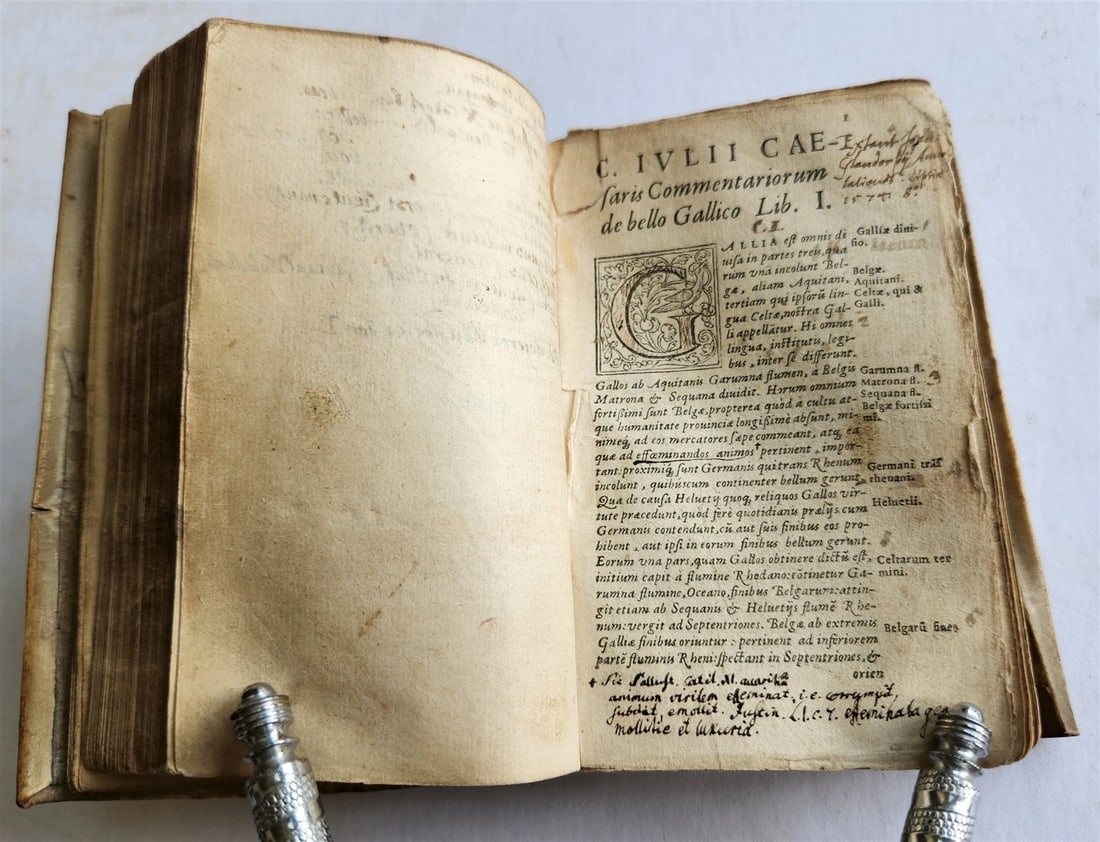 I
C. IVLII CAE-
saris Commentariorum
de bello Gallico Lib. I.
C. I.
GALLIA est omnis di
uisa in partes treis, qua
rum vna incolunt Bel-
gæ, aliam Aquitani,
tertiam qui ipsorũ lin-
gua Celtæ, nostra Gal-
li appellãtur. Hi omnes
lingua, institutis, legi-
bus, inter se differunt.
Gallos ab Aquitanis Garumna flumen, à Belgis
Matrona & Sequana diuidit. Horum omnium
fortißimi sunt Belgæ, propterea quòd à cultu at-
que humanitate prouinciæ longißimè absunt, mi-
nimeq; ad eos mercatores sæpe commeant, atq; ea
quæ ad effœminandos animos pertinent, impor-
tant: proximiq; sunt Germanis qui trans Rhenum
incolunt, quibuscum continenter bellum gerunt.
Qua de causa Heluetij quoq; reliquos Gallos vir-
tute præcedunt, quòd ferè quotidianis prælijs cum
Germanis contendunt, cũ aut suis finibus eos pro-
hibent, aut ipsi in eorum finibus bellum gerunt.
Eorum vna pars, quam Gallos obtinere dictũ est,
initium capit à flumine Rhodano: cõtinetur Ga-
rumna flumine, Oceano, finibus Belgarum: attin-
git etiam ab Sequanis & Heluetijs flumẽ Rhe-
num: vergit ad Septentriones. Belgæ ab extremis
Galliæ finibus oriuntur: pertinent ad inferiorem
partẽ fluminis Rheni: spectant in Septentriones, &
orien
Galliæ diui-
sio.
Belgæ.
Aquitani.
Celtæ, qui &
Galli.
Garumna fl.
Matrona fl.
Sequana fl.
Belgæ fortissi
mi.
Germani trãs
rhenani.
Heluetii.
Celtarum ter
mini.
Belgarũ fines
Extant
1574.
+ Sic Sallust. Catil. XI. avaritia
animum virilem effeminat, i.e. corrumpit,
subdit, emollit. Justin. L.1.c.7. effeminata gens
mollitie et luxuria.